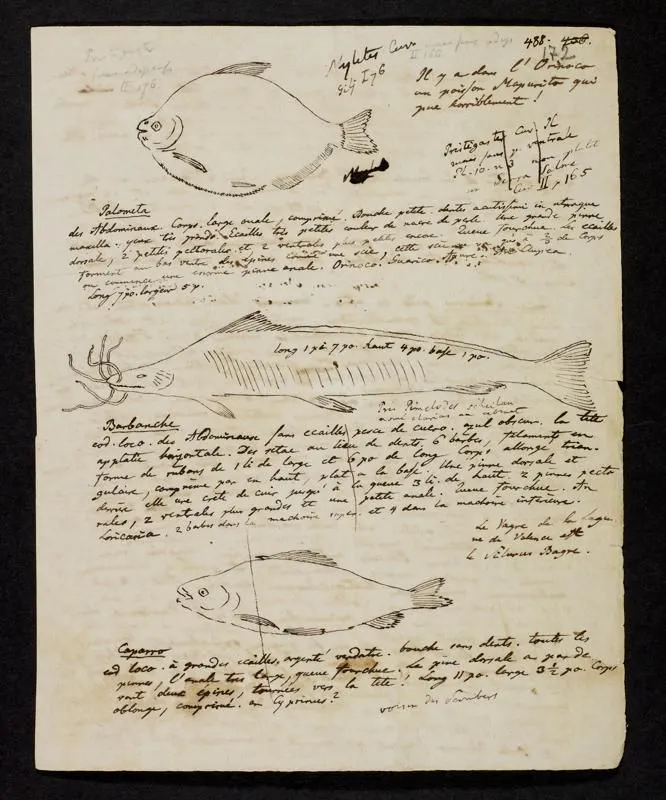 488.
172
Il y a dans l'Orinoco
un poisson Mapurito qui
pue horriblement !
Myletes Cuv
I 76
Cuv II p 165
Palometa
des Abdominaux. Corps large ovale, comprimé. Bouche petite. dents acutissimi in utraque
maxilla. yeux très grands. Ecailles très petites couleur de nacre de perle. Une grande pinne
dorsale, 2 petites pectorales et 2 ventrales plus petites encore. Queue fourchue. Les ecailles
forment au bas ventre des épines comme une scie, cette scie 2/3 de Corps
ou commence une enorme pinne anale. Orinoco. Guarico. Apure.
Long 7 po. largeur 5 p.
long 1 pi. 7 po. haut 4 po. base 1 po.
Barbanche
eod. loco. des Abdominaux sans ecailles, pesce de cuero. azul obscur. la tête
applatie horizontale. Des setae au lieu de dents, 6 barbes, filaments en
forme de rubans de 1 li de large et 6 po de long. Corps allongé, trian-
gulaire, comprimé par en haut, plat a la base. Une pinne dorsale et
derrière elle une crête de cuir jusqu'à la queue 3 li. de haut. 2 pinnes pecto
rales, 2 ventrales plus grandes et une petite anale. Queue fourchue. An
Loricaria. 2 barbes dans la machoire super. et 4 dans la machoire inférieure.
Le Bagre de la Lagu-
ne de Valence est
le Silurus Bagre.
Caparro
eod loco. à grandes ecailles, argenté verdatre. bouche sans dents. toutes les
pinnes, l'anale très large, queue fourchue. La pine dorsale a par de
vant deux epines, tournées vers la tête ! Long 11 po. large 3 1/2 po. Corps
oblongue, comprimé. an Cyprinus ?
voisin des